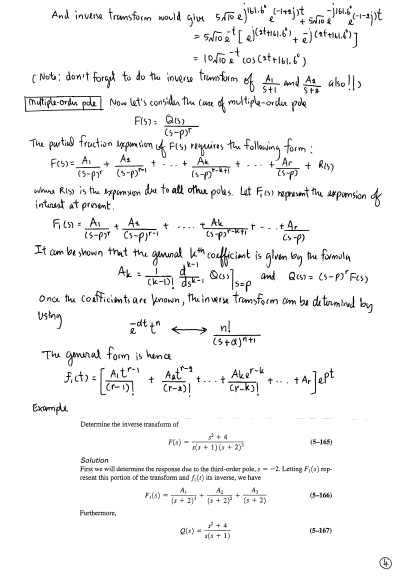 And inverse transform would give 5√10 e^{j161.6°} e^{(-1+2j)t} + 5√10 e^{-j161.6°} e^{(-1-2j)t}
= 5√10 e^{-t} [ e^{j(2t+161.6°)} + e^{-j(2t+161.6°)} ]
= 10√10 e^{-t} cos(2t+161.6°)
(Note: don't forget to do the inverse transform of A₁/(s+1) and A₂/(s+3) also!!)
Multiple-order pole Now let's consider the case of multiple-order pole
F(s) = Q(s)/(s-p)^r
The partial fraction expansion of F(s) requires the following form:
F(s) = A₁/(s-p)^r + A₂/(s-p)^{r-1} + ... + Ak/(s-p)^{r-k+1} + ... + Ar/(s-p) + R(s)
where R(s) is the expansion due to all other poles. Let F₁(s) represent the expansion of
interest at present.
F₁(s) = A₁/(s-p)^r + A₂/(s-p)^{r-1} + .... + Ak/(s-p)^{r-k+1} + ... + Ar/(s-p)
It can be shown that the general kth coefficient is given by the formula
Ak = 1/(k-1)! d^{k-1}/ds^{k-1} Q(s)]_{s=p} and Q(s) = (s-p)^r F(s)
Once the coefficients are known, the inverse transform can be determined by
using
e^{-αt} t^n ⟷ n!/(s+α)^{n+1}
The general form is hence
f₁(t) = [ A₁t^{r-1}/(r-1)! + A₂t^{r-2}/(r-2)! + ... + Ak t^{r-k}/(r-k)! + ... + Ar ] e^{pt}
Example
Determine the inverse transform of
F(s) = (s² + 4)/(s(s + 1)(s + 2)³) (5–165)
Solution
First we will determine the response due to the third-order pole, s = −2. Letting F₁(s) rep-
resent this portion of the transform and f₁(t) its inverse, we have
F₁(s) = A₁/(s + 2)³ + A₂/(s + 2)² + A₃/(s + 2) (5–166)
Furthermore,
Q(s) = (s² + 4)/(s(s + 1)) (5–167)
4